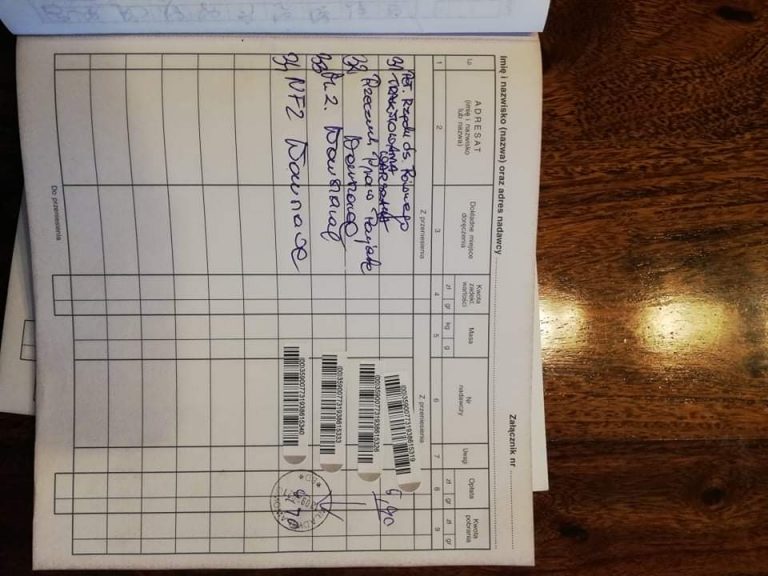 Załącznik nr
Imię i nazwisko (nazwa) oraz adres nadawcy
Lp.
ADRESAT
(imię i nazwisko
lub nazwa)
Dokładne miejsce
doręczenia
Kwota
zadekl.
wartości
zł gr
Masa
kg g
Nr
nadawczy
Uwagi
Opłata
zł gr
Kwota
pobrania
zł gr
1 2 3 4 5 6 7 8 9
Z przeniesienia Z przeniesienia
31 Peł. Rządu ds. Równego
Traktowania
Warszawa
(00)359007731938615319
32 Rzecznik Praw Pacjenta
Warszawa
(00)359007731938615326
33 Warszawa
(00)359007731938615333
34 NFZ Warszawa
(00)359007731938615340
Do przeniesienia